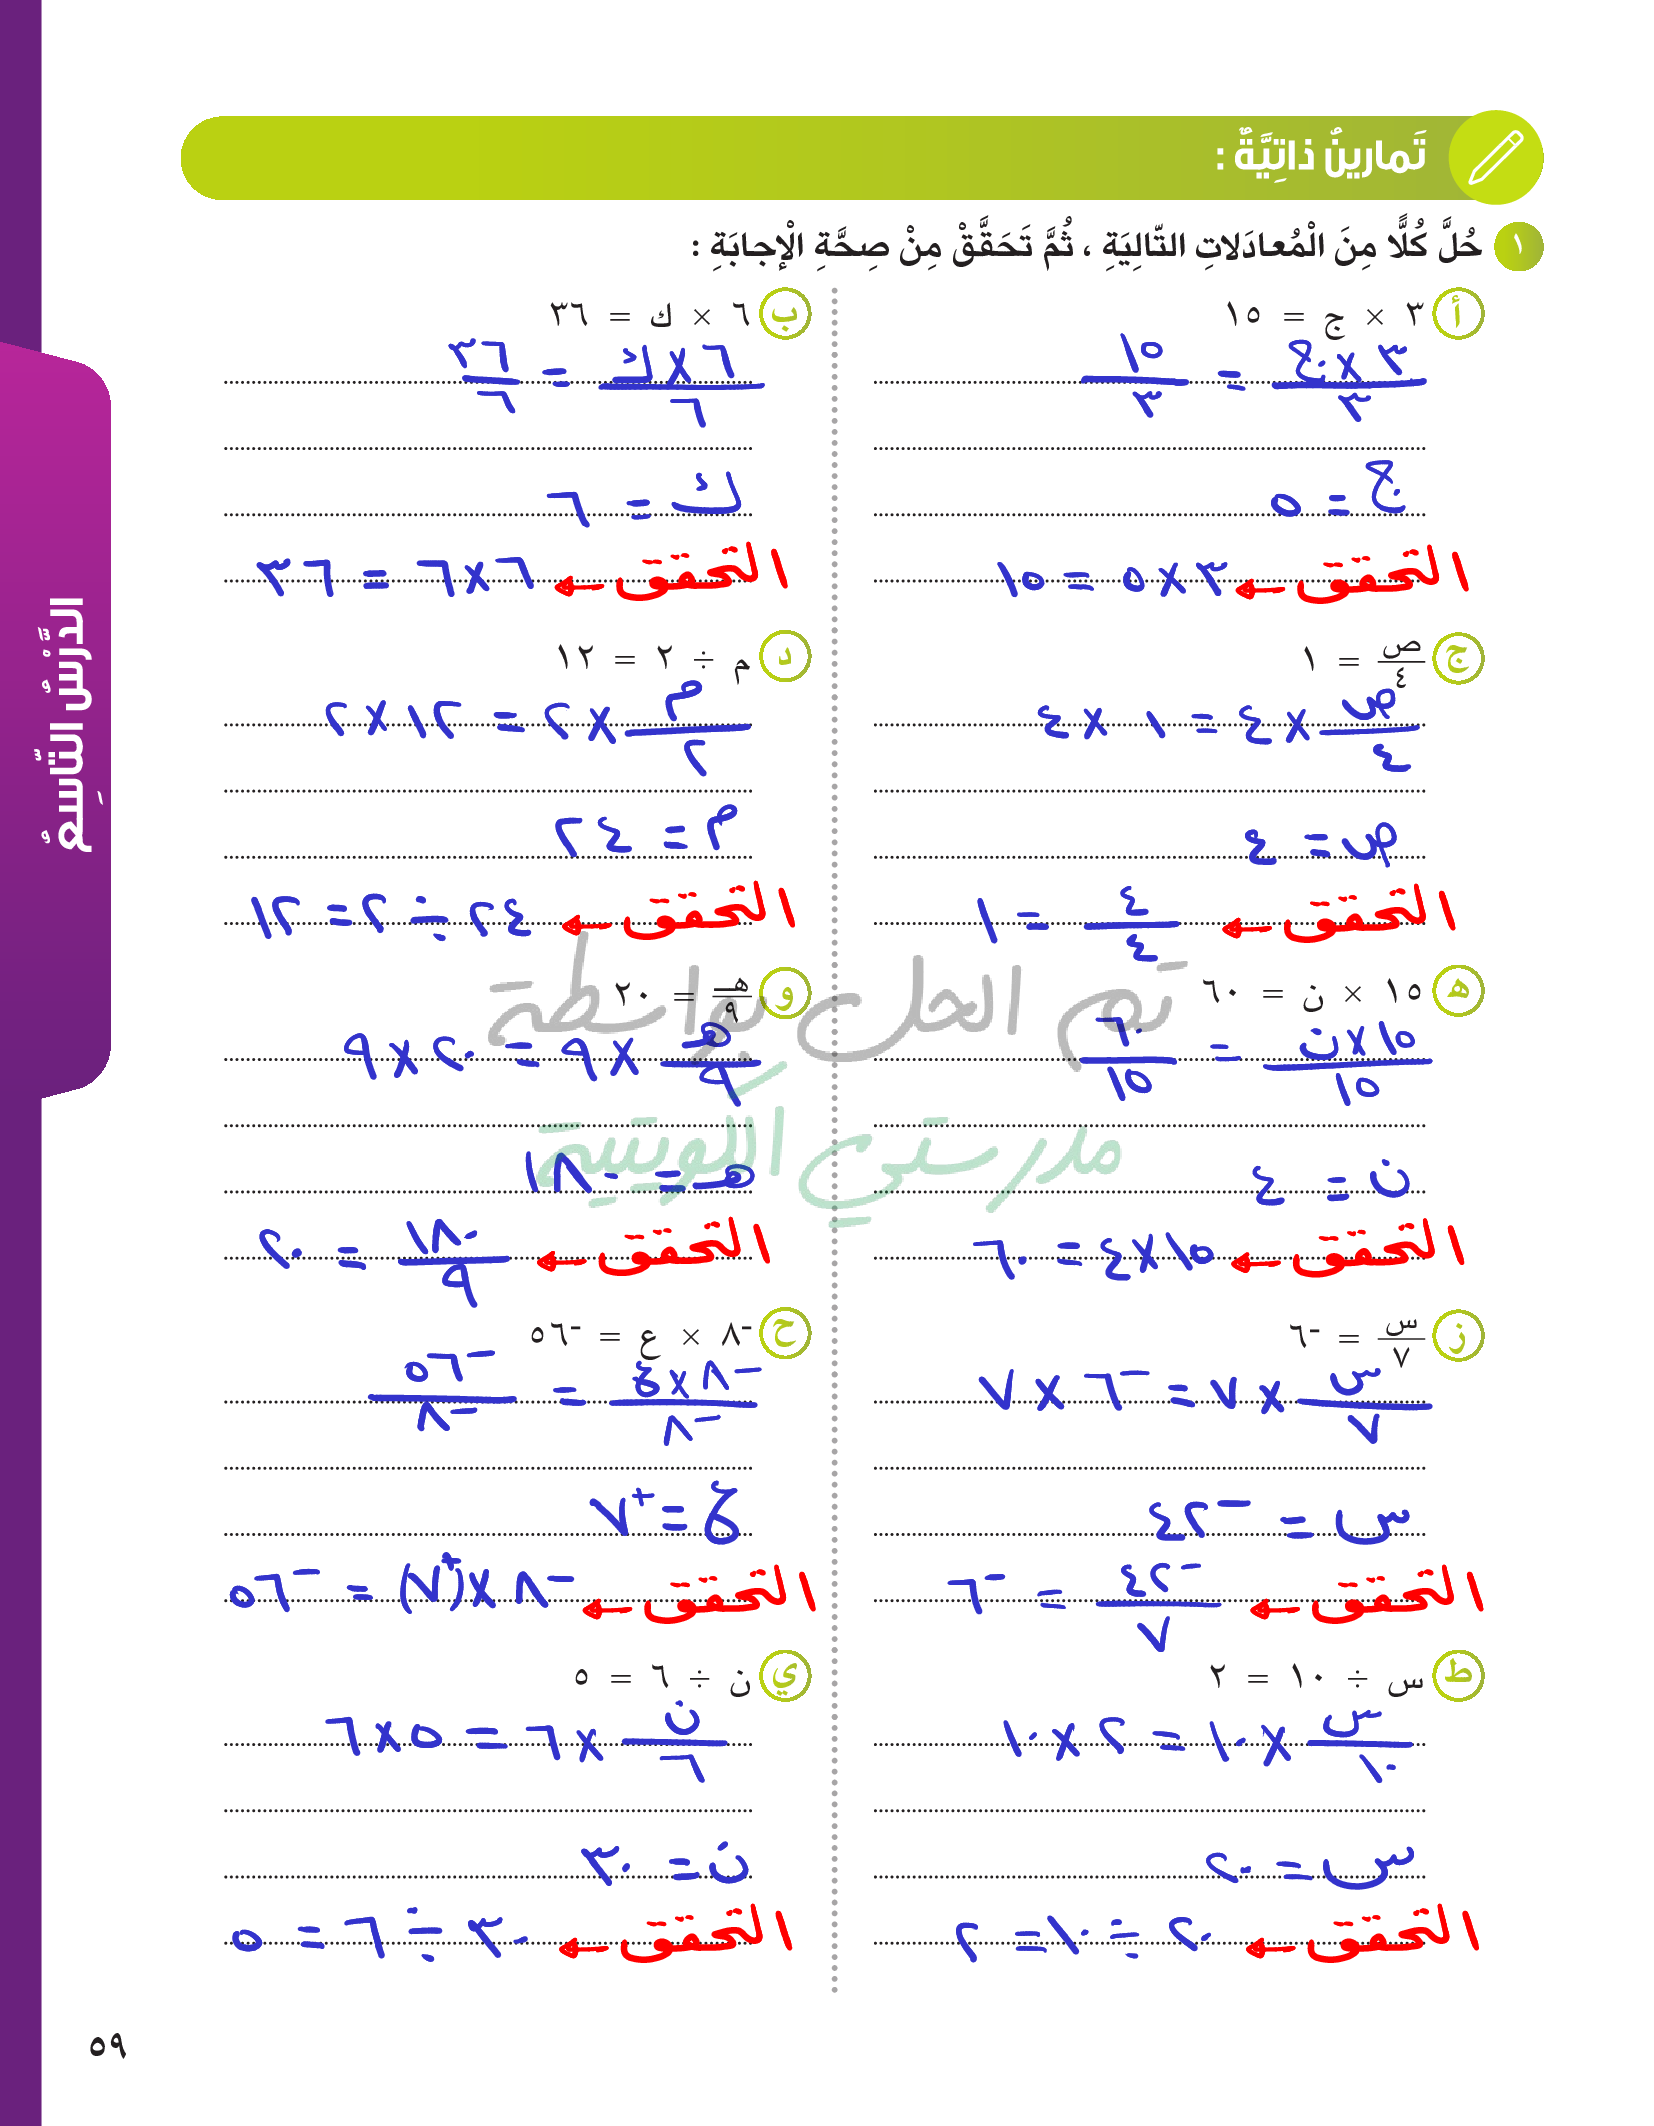 تَمارينُ ذاتِيَّةٌ :
١ حُلَّ كُلًّا مِنَ الْمُعادَلاتِ التّالِيَةِ ، ثُمَّ تَحَقَّقْ مِنْ صِحَّةِ الْإجابَةِ :
أ ٣ × ج = ١٥
٣ × ج / ٣ = ١٥ / ٣
ج = ٥
التحقق ← ٣ × ٥ = ١٥
ب ٦ × ك = ٣٦
٦ × ك / ٦ = ٣٦ / ٦
ك = ٦
التحقق ← ٦ × ٦ = ٣٦
ج ص / ٤ = ١
ص / ٤ × ٤ = ١ × ٤
ص = ٤
التحقق ← ٤ / ٤ = ١
د م ÷ ٢ = ١٢
م / ٢ × ٢ = ١٢ × ٢
م = ٢٤
التحقق ← ٢٤ ÷ ٢ = ١٢
هـ ١٥ × ن = ٦٠
١٥ × ن / ١٥ = ٦٠ / ١٥
ن = ٤
التحقق ← ١٥ × ٤ = ٦٠
و هـ / ٩ = ٢٠
هـ / ٩ × ٩ = ٢٠ × ٩
هـ = ١٨٠
التحقق ← ١٨٠ / ٩ = ٢٠
تم الحل بواسطة
مدرستي الكويتية
ز س / ٧ = ⁻٦
س / ٧ × ٧ = ⁻٦ × ٧
س = ⁻٤٢
التحقق ← ⁻٤٢ / ٧ = ⁻٦
ح ⁻٨ × ع = ⁻٥٦
⁻٨ × ع / ⁻٨ = ⁻٥٦ / ⁻٨
ع = ⁺٧
التحقق ← ⁻٨ × (⁺٧) = ⁻٥٦
ط س ÷ ١٠ = ٢
س / ١٠ × ١٠ = ٢ × ١٠
س = ٢٠
التحقق ← ٢٠ ÷ ١٠ = ٢
ي ن ÷ ٦ = ٥
ن / ٦ × ٦ = ٥ × ٦
ن = ٣٠
التحقق ← ٣٠ ÷ ٦ = ٥
الدَّرْسُ التّاسِعُ
٥٩